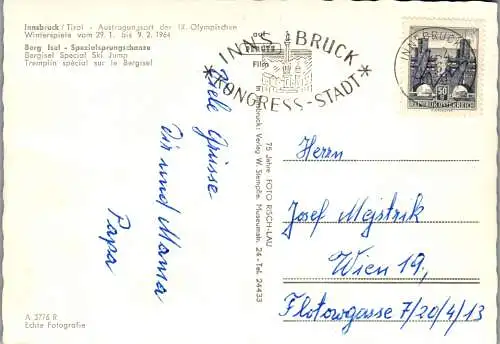 Innsbruck / Tirol - Austragungsort der IX. Olympischen
Winterspiele vom 29. 1. bis 9. 2. 1964
Berg Isel - Spezialsprungschanze
Bergisel Special Ski Jump
Tremplin spécial sur le Bergisel
auf
PERUTZ
Film
INNSBRUCK
*KONGRESS-STADT*
INNSBRUCK
50
REPUBLIK ÖSTERREICH
Viele Grüsse
Dir und Mama
Papa
75 Jahre FOTO RISCH-LAU
in Innsbruck: Verlag W. Stempfle, Museumstr. 24 - Tel. 24433
Herrn
Josef Mejstrik
Wien 19.,
Flotowgasse 7/20/4/13
A 3776 R
Echte Fotografie